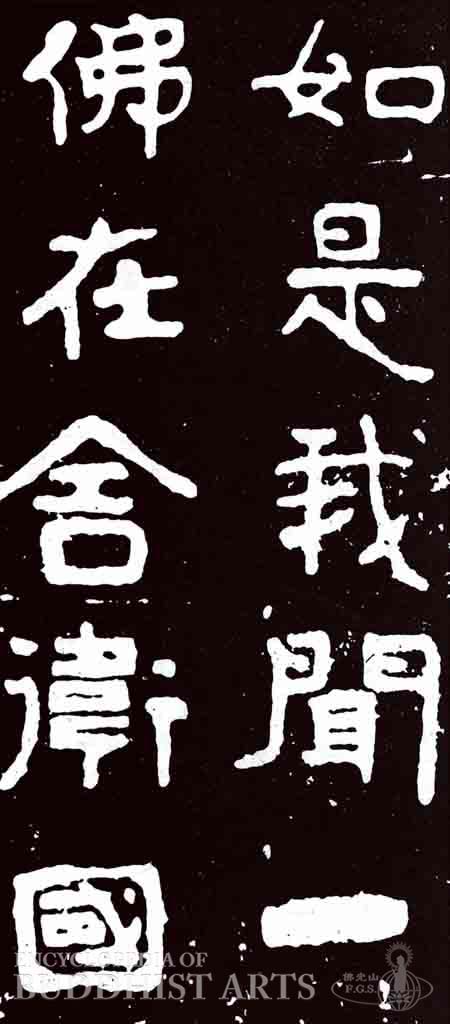 如是我聞一
佛在舍衛國
ENCYCLOPEDIA OF
BUDDHIST ARTS
佛光山
F.G.S.